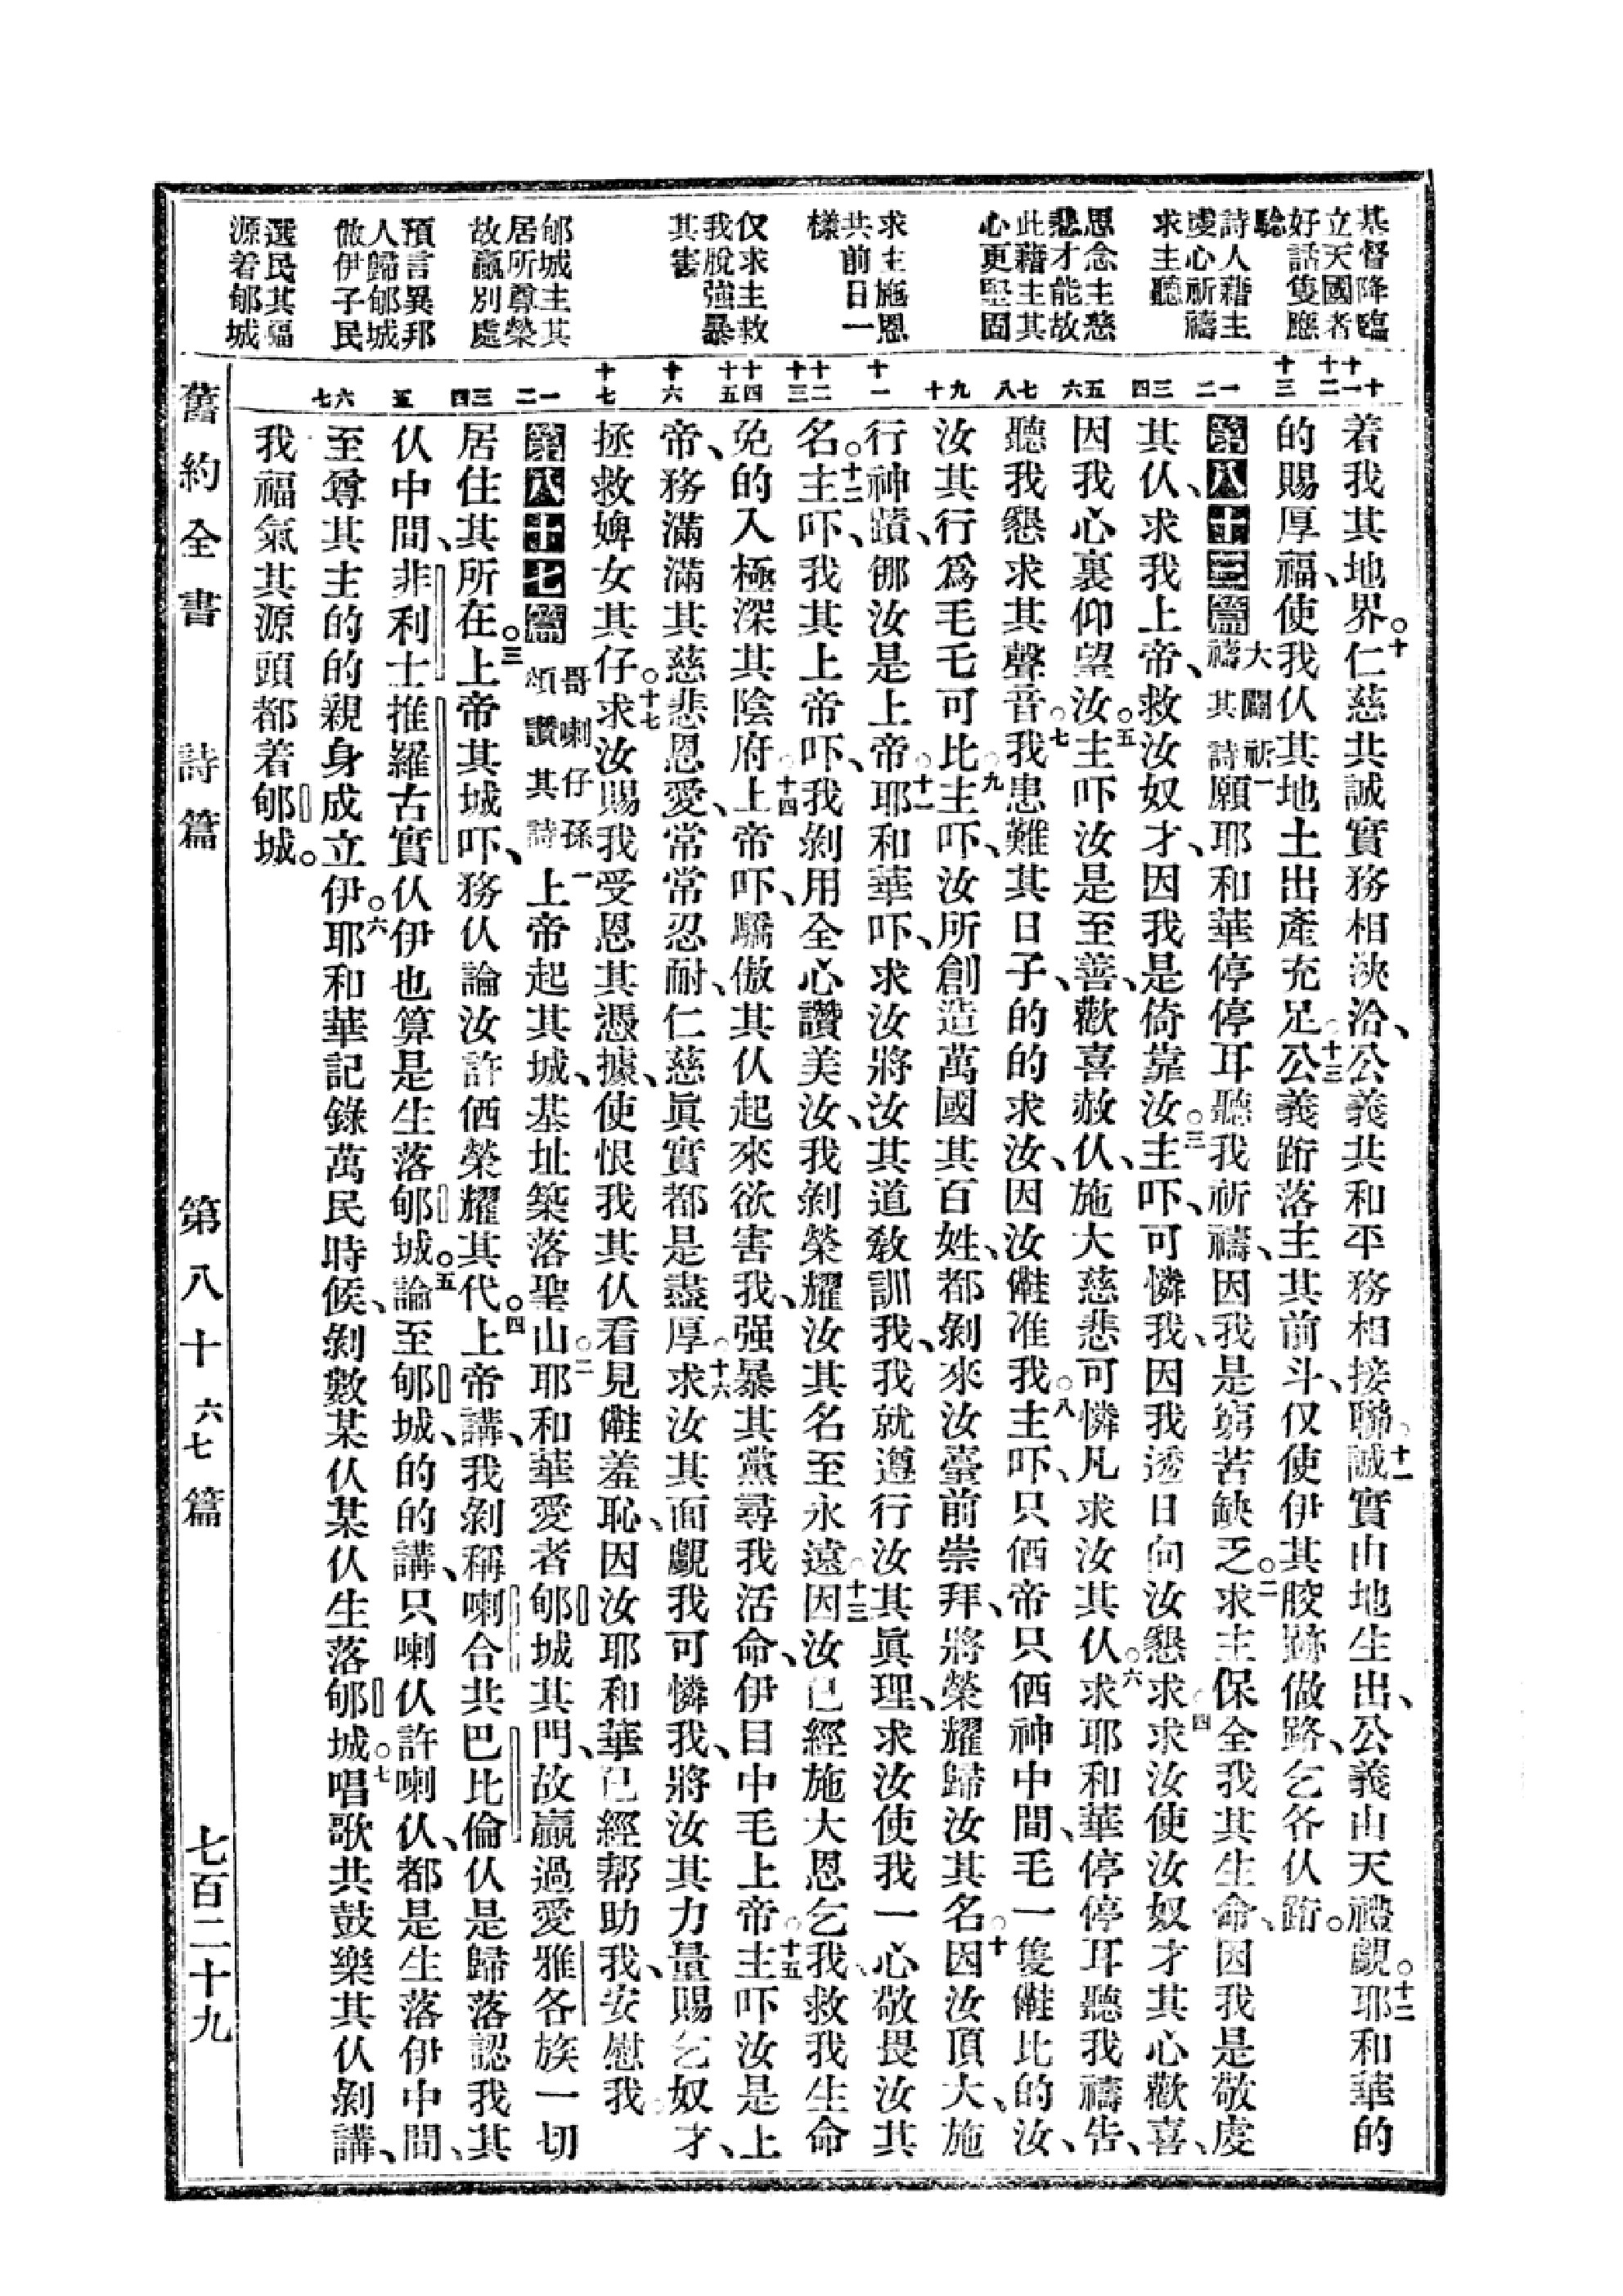 基督降臨
立天國者
好話隻應
驗
詩人藉主
虔心祈禱
求主聽
思念主慈
悲才能故
此藉主其
心更堅固
求主施恩
共前日一
樣
仅求主救
我脫強暴
其害
郇城主其
居所尊榮
故贏別處
預言異邦
人歸郇城
做伊子民
選民其福
源着郇城
十
十一
十二
十三
一
二
三
四
五
六
七
八
九
十
十一
十二
十三
十四
十五
十六
十七
一
二
三
四
五
六
七
着我其地界。十仁慈共誠實務相浹洽、公義共和平務相接聯。十一誠實由地生出、公義由天𥚃覷。十二耶和華的
的賜厚福、使我仅其地土出產充足。十三公義跲落主其前斗、仅使伊其骹跡做路、乞各仅跲。
第八十六篇 大闢祈禱其詩 一願耶和華停停耳聽我祈禱、因我是窮苦缺乏。二求主保全我其生命、因我是敬虔
其仅、求我上帝、救汝奴才、因我是倚靠汝。三主吓、可憐我、因我透日向汝懇求。四求汝使汝奴才其心歡喜、
因我心裏仰望汝。五主吓汝是至善、歡喜赦仅、施大慈悲可憐凡求汝其仅。六求耶和華停停耳聽我禱告、
聽我懇求其聲音。七我患難其日子、的的求汝、因汝儺准我。八主吓、只俹帝只俹神中間、毛一隻儺比的汝、
汝其行爲毛乇可比。九主吓、汝所創造萬國其百姓、都剝來汝臺前崇拜、將榮耀歸汝其名。十因汝頂大、施
行神蹟、㑚汝是上帝。十一耶和華吓、求汝將汝其道教訓我、我就遵行汝其眞理、求汝使我一心敬畏汝其
名。十二主吓、我其上帝吓、我剝用全心讚美汝、我剝榮耀汝其名至永遠。十三因汝已經施大恩乞我、救我生命
免的入極深其陰府。十四上帝吓、驕傲其仅起來欲害我、强暴其黨尋我活命、伊目中毛上帝。十五主吓汝是上
帝、務滿滿其慈悲恩愛、常常忍耐、仁慈眞實都是盡厚。十六求汝其面覷我可憐我、將汝其力量賜乞奴才、
拯救婢女其仔。十七求汝賜我受恩其憑據、使恨我其仅看見儺羞恥、因汝耶和華已經帮助我、安慰我。
第八十七篇 哥喇仔孫頌讚其詩 一上帝起其城、基址築落聖山。二耶和華愛者郇城其門、故贏過愛雅各族一切
居住其所在。三上帝其城吓、務仅論汝許俹榮耀其代。四上帝講、我剝稱喇合共巴比倫仅是歸落認我其
仅中間、非利士推羅古實仅伊也算是生落郇城。五論至郇城、的的講、只喇仅許喇仅、都是生落伊中間、
至尊其主的的親身成立伊。六耶和華記錄萬民時候、剝數某仅某仅生落郇城。七唱歌共鼓樂其仅剝講、
我福氣其源頭都着郇城。
舊約全書 詩篇 第八十六七篇 七百二十九